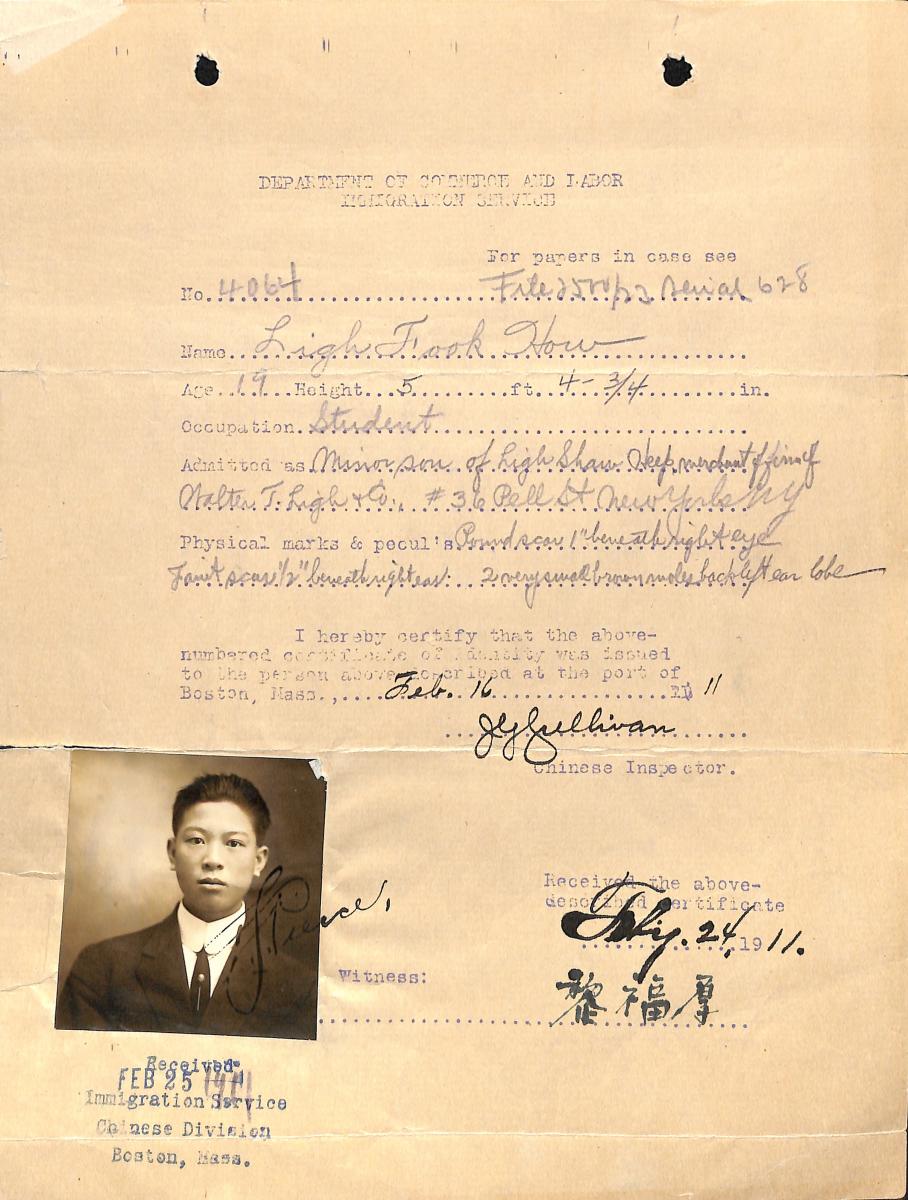 DEPARTMENT OF COMMERCE AND LABOR
IMMIGRATION SERVICE
For papers in case see
No. 4064 File 2500/ Serial 628
Name Ligh Fook How
Age 19 Height 5 ft. 4-3/4 in.
Occupation. Student
Admitted as Minor son of Ligh Shaw Keep merchant of firm of
Walter T. Ligh & Co., #36 Pell St New York NY
Physical marks & pecul's Round scar 1" beneath right eye
Faint scar 1/2" beneath right ear. 2 very small brown moles back left ear lobe
I hereby certify that the above-
numbered certificate of identity was issued
to the person above described at the port of
Boston, Mass., Feb. 16 11
Sullivan
Chinese Inspector.
Received the above-
described certificate
24, 1911.
Pierce,
Witness:
黎福厚
Received
FEB 25 1911
Immigration Service
Chinese Division
Boston, Mass.